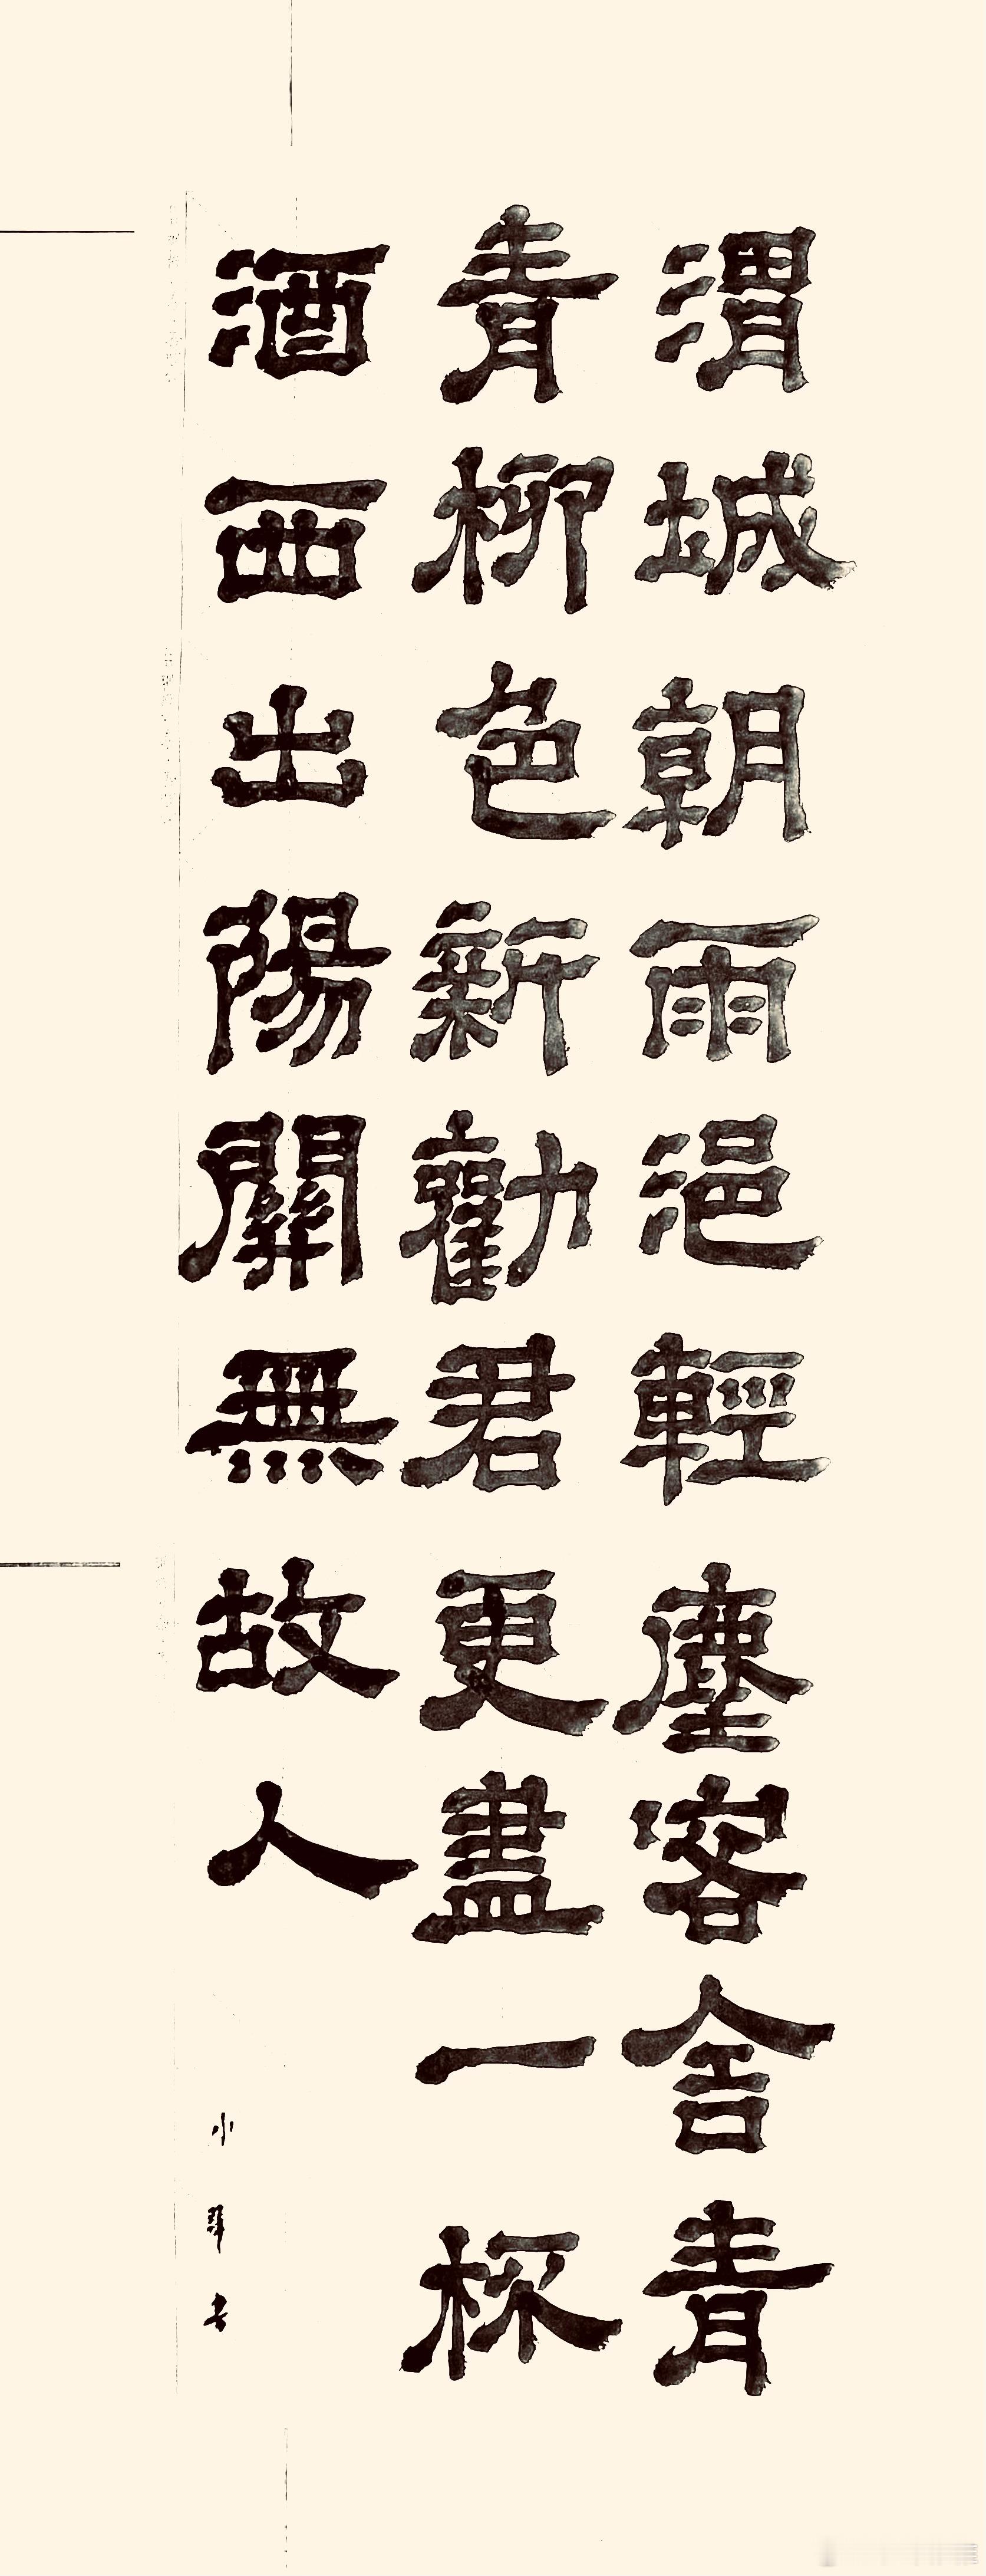 渭城朝雨浥輕塵客舍青
青柳色新勸君更盡一杯
酒西出陽關無故人
小